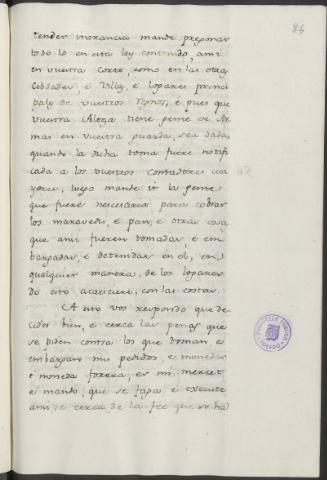 84
tender inorancia mande pregonar
todo lo en esta ley contenido, ansi
en vuestra Corte, como en las otras
Cibdades, é Villas, é logares princi
pales de vuestros Regnos; é pues que
vuestra Alteza tiene gente de Ar
mas en vuestra guarda, sea dada,
quando la dicha toma fuere notifi
cada a los vuestros contadores ma
yores, luego mande ir la gente
que fuere necesaria para cobrar
los maravedis, é pan, é otras cosas
que ansi fueren tomadas, é em
bargadas, é detenidas en él, en
qualquier manera, de los logares
do esto acaesciere, con las costas.
A esto vos respondo que de
cides bien, é cerca las penas que
se piden contra los que toman é
embargan mis pedidos, é monedas
é moneda forera, es mi merced
é mando, que se faga é execute
ansi é cerca de la fee que se ha
BIBLIOTECA PUBLICA
TOLEDO